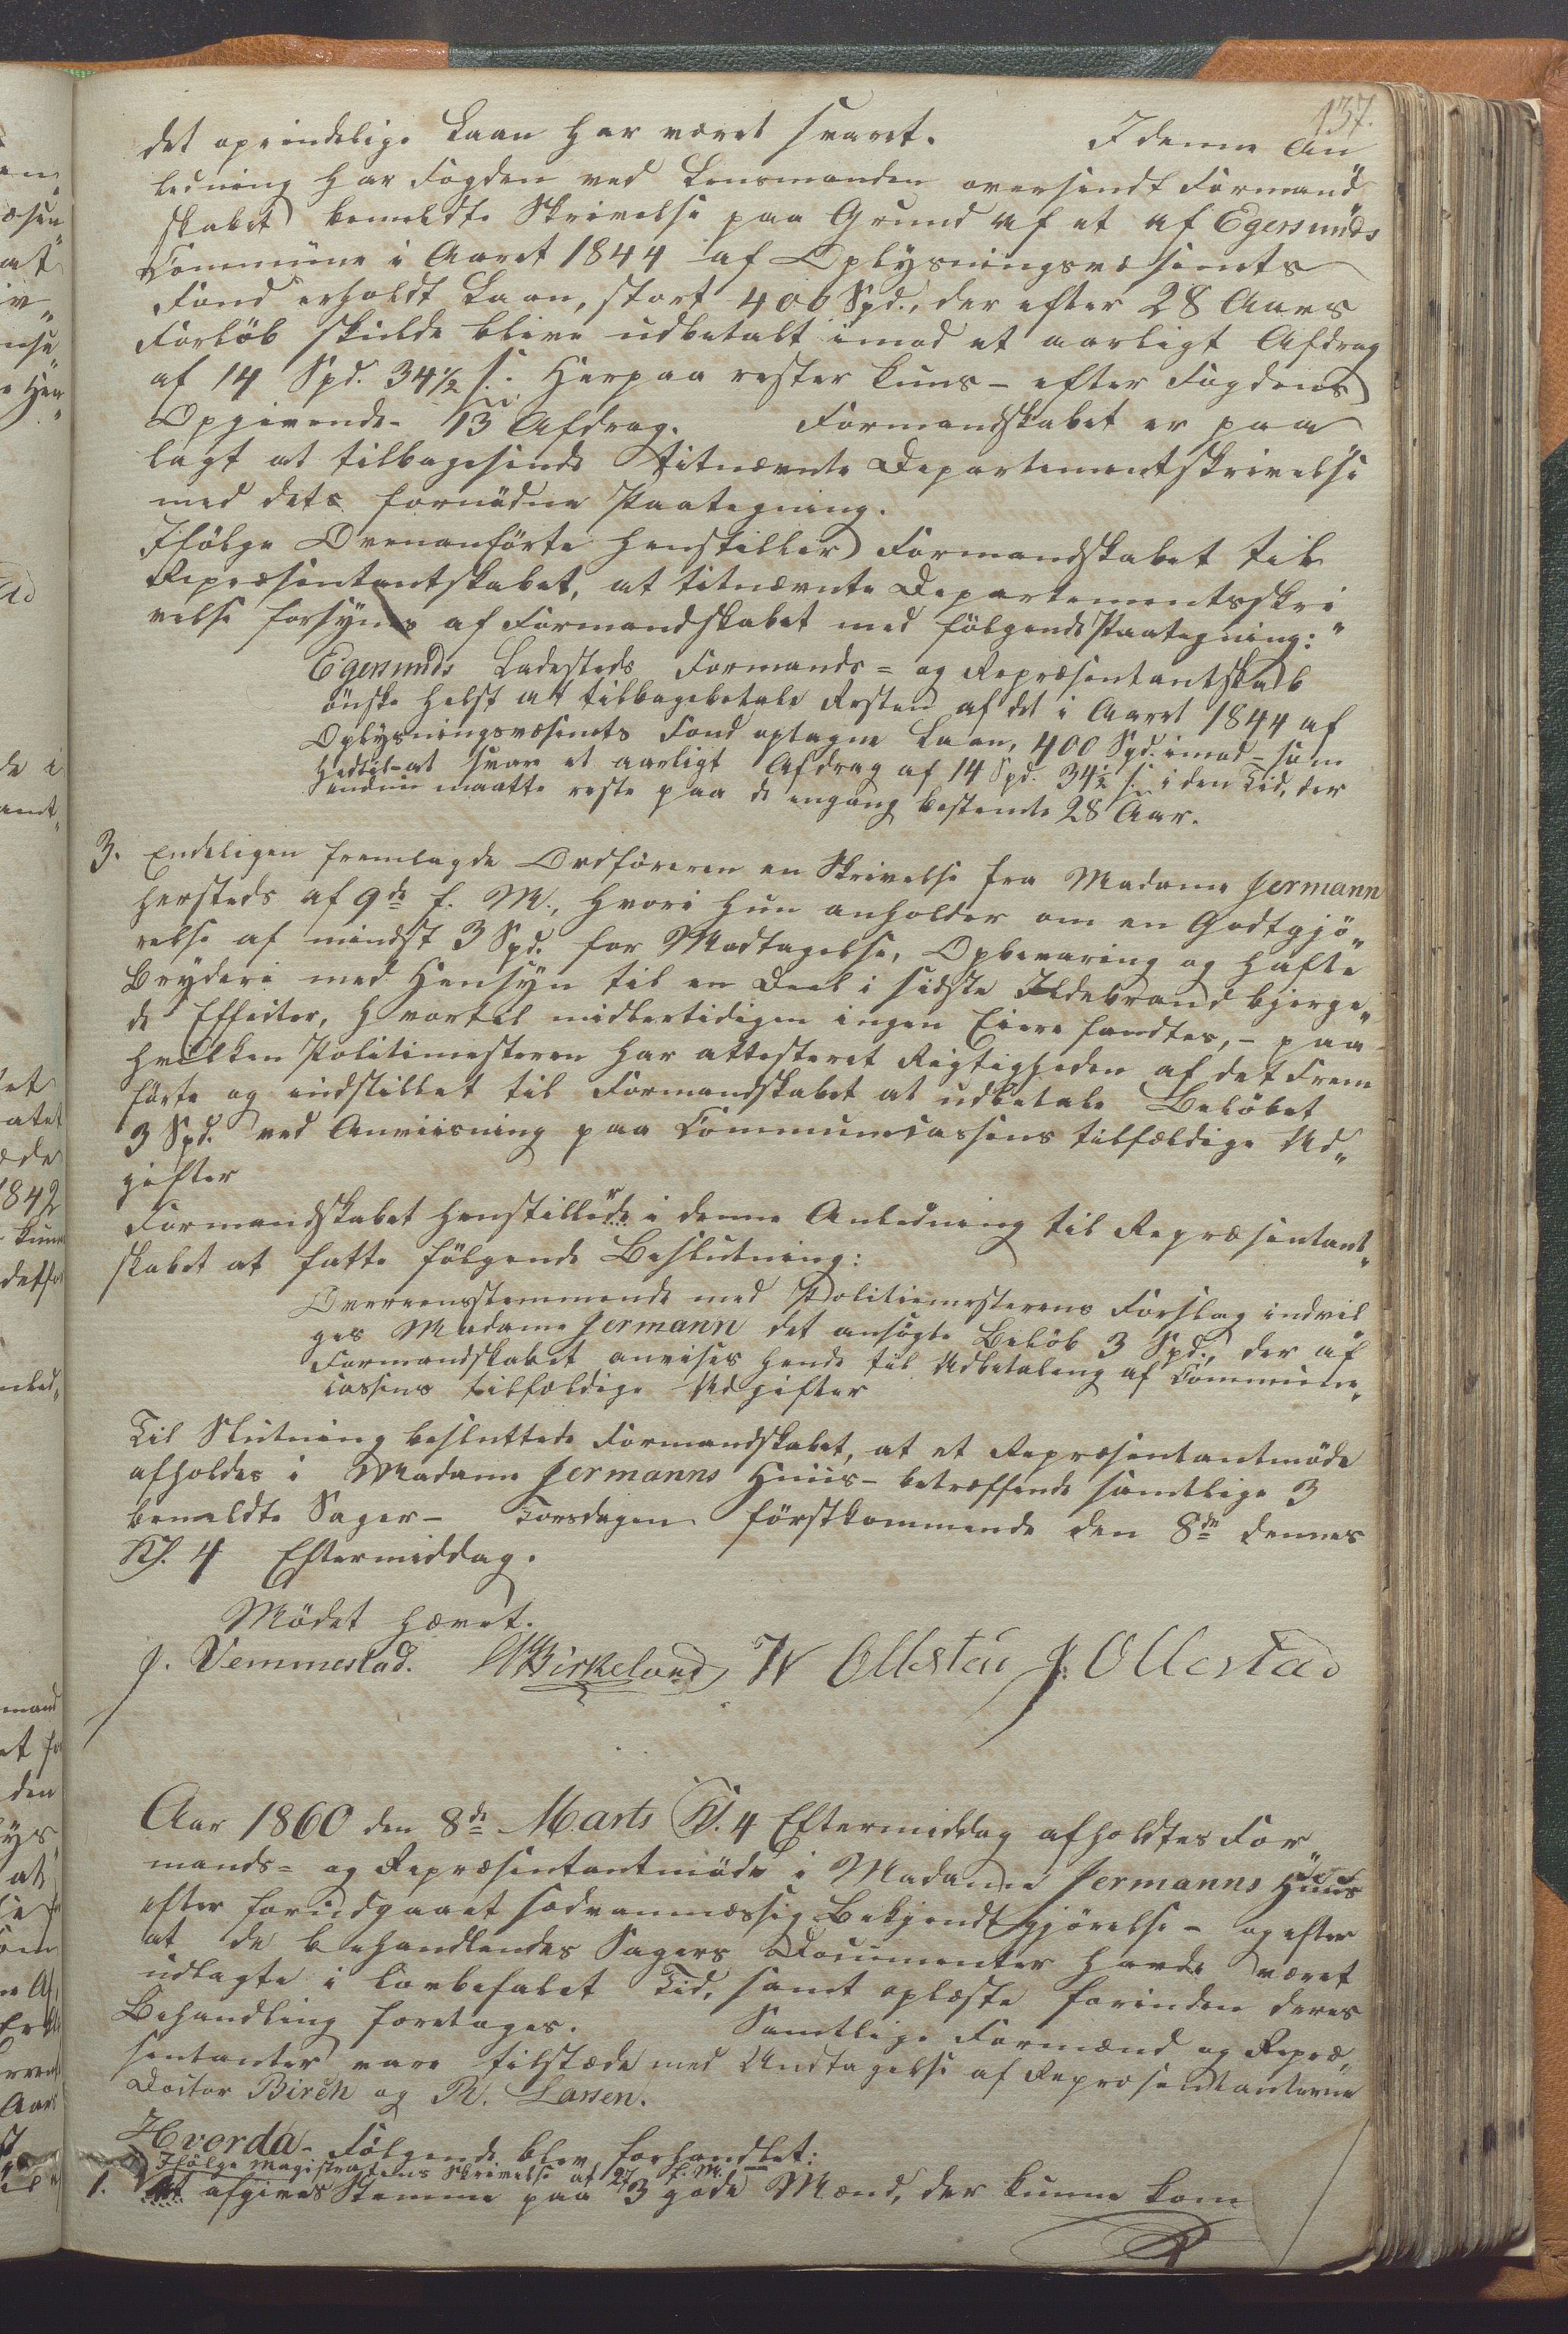 137.
det oprindelige Laan har været svaret. I denne An„
ledning har Fogden ved Lensmanden oversendt Formand„
skabet bemeldte Skrivelse paa Grund af et af Egersunds
Commune i Aaret 1844 af Oplysningsvæsenets
Fond erholdt Laan, stort 400 Spd., der efter 28 Aars
Forløb skulde blive udbetalt imod et aarligt Afdrag
af 14 Spd. 34½ s. Herpaa rester kuns - efter Fogdens
Opgivende - 13 Afdrag. Formandskabet er paa
lagt at tilbagesende titnævnte Departementskrivelse
med dets fornødne Paategning.
Ifølge Ovenanførte henstiller Formandskabet til
Repræsentantskabet, at titnævnte Departementsskri„
velse forsynes af Formandskabet med følgende Paategning:
Egersunds Ladesteds Formands= og Repræsentantskab
ønske helst at tilbagebetale Resten af det i Aaret 1844 af
Oplysningsvæsenets Fond optagne Laan, 400 Spd. imod - som
hedtil - at svare et aarligt Afdrag af 14 Spd. 34½ s. i den Tid, der
endnu maatte reste paa de engang bestemte 28 Aar.
3. Endeligen fremlagde Ordføreren en Skrivelse fra Madame Jermann
hersteds af 9de f. M., hvori hun anholder om en Godtgjø„
relse af mindst 3 Spd. for Modtagelse, Opbevaring og hafte
Bryderi med Hensyn til en Deel i sidste Ildebrand bjerge„
de Effecter, hvortil midlertidigen ingen Eiere fandtes, - paa
hvilken Politimesteren har attesteret Rigtigheden af det Frem
førte og indstillet til Formandskabet at udbetale Beløbet
3 Spd. ved Anviisning paa Communecassens tilfældige Ud„
gifter
Formandskabet henstiller i denne Anledning til Repræsentant„
skabet at fatte følgende Beslutning:
Overeensstemmende med Politiemesterens Forslag indvil
ges Madame Jermann det ansøgte Beløb 3 Spd., der af
Formandskabet anvises hende til Udbetaling af Commune„
cassens tilfældige Udgifter
Til Slutning besluttede Formandskabet, at et Repræsentantmøde
afholdes i Madame Jermanns Huus - betræffende samtlige 3
bemeldte Sager - Torsdagen førstkommende den 8de dennes
Kl. 4 Eftermiddag.
Mødet hævet.
J. Vemmestad. Birkeland W Ollestad J. Ollestad
Aar 1860 den 8de Marts Kl. 4 Eftermiddag afholdtes For„
mands= og Repræsentantmøde i Madame Jermanns Huus
efter foridgaaet sædvanmæssig Bekjendtgjørelse - og efter
at de behandlendes Sagers Documenter havde været
udlagte i lovbefalet Tid, samt oplæste forinden deres
Behandling foretoges. Samtlige Formænd og Repræ„
sentanter vare tilstæde med Undtagelse af Repræsentanterne
Doctor Birch og R. Larsen.
Hvorda - Følgende blev forhandlet:
Ifølge Magistratens Skrivelse af 27 f. M.
1. at afgives Stemme paa 3 gode Mænd, der kunne kom